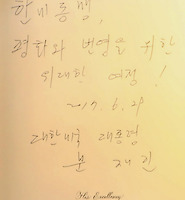 한미동맹,
평화와 번영을 위한
위대한 여정!
2017. 6. 28
대한민국 대통령
문 재 인
His Excellency